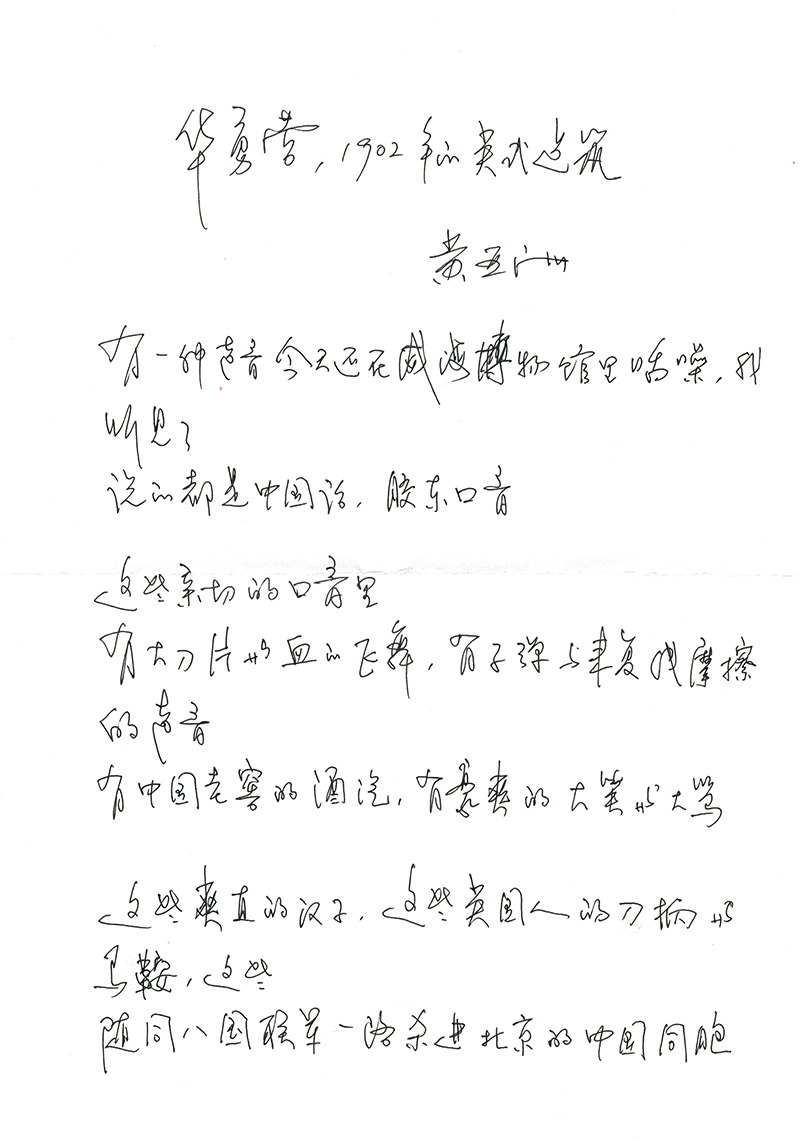 华勇营，1902年的英式建筑
黄亚洲
有一种声音今天还在威海博物馆里嘈噪，我
听见了
说的都是中国话，胶东口音
这些亲切的口音里
有大刀片与血的飞舞，有子弹与来复线摩擦
的声音
有中国老窖的酒气，有豪爽的大笑与大骂
这些爽直的汉子，这些英国人的刀柄与
马鞍，这些
随同八国联军一路杀进北京的中国同胞